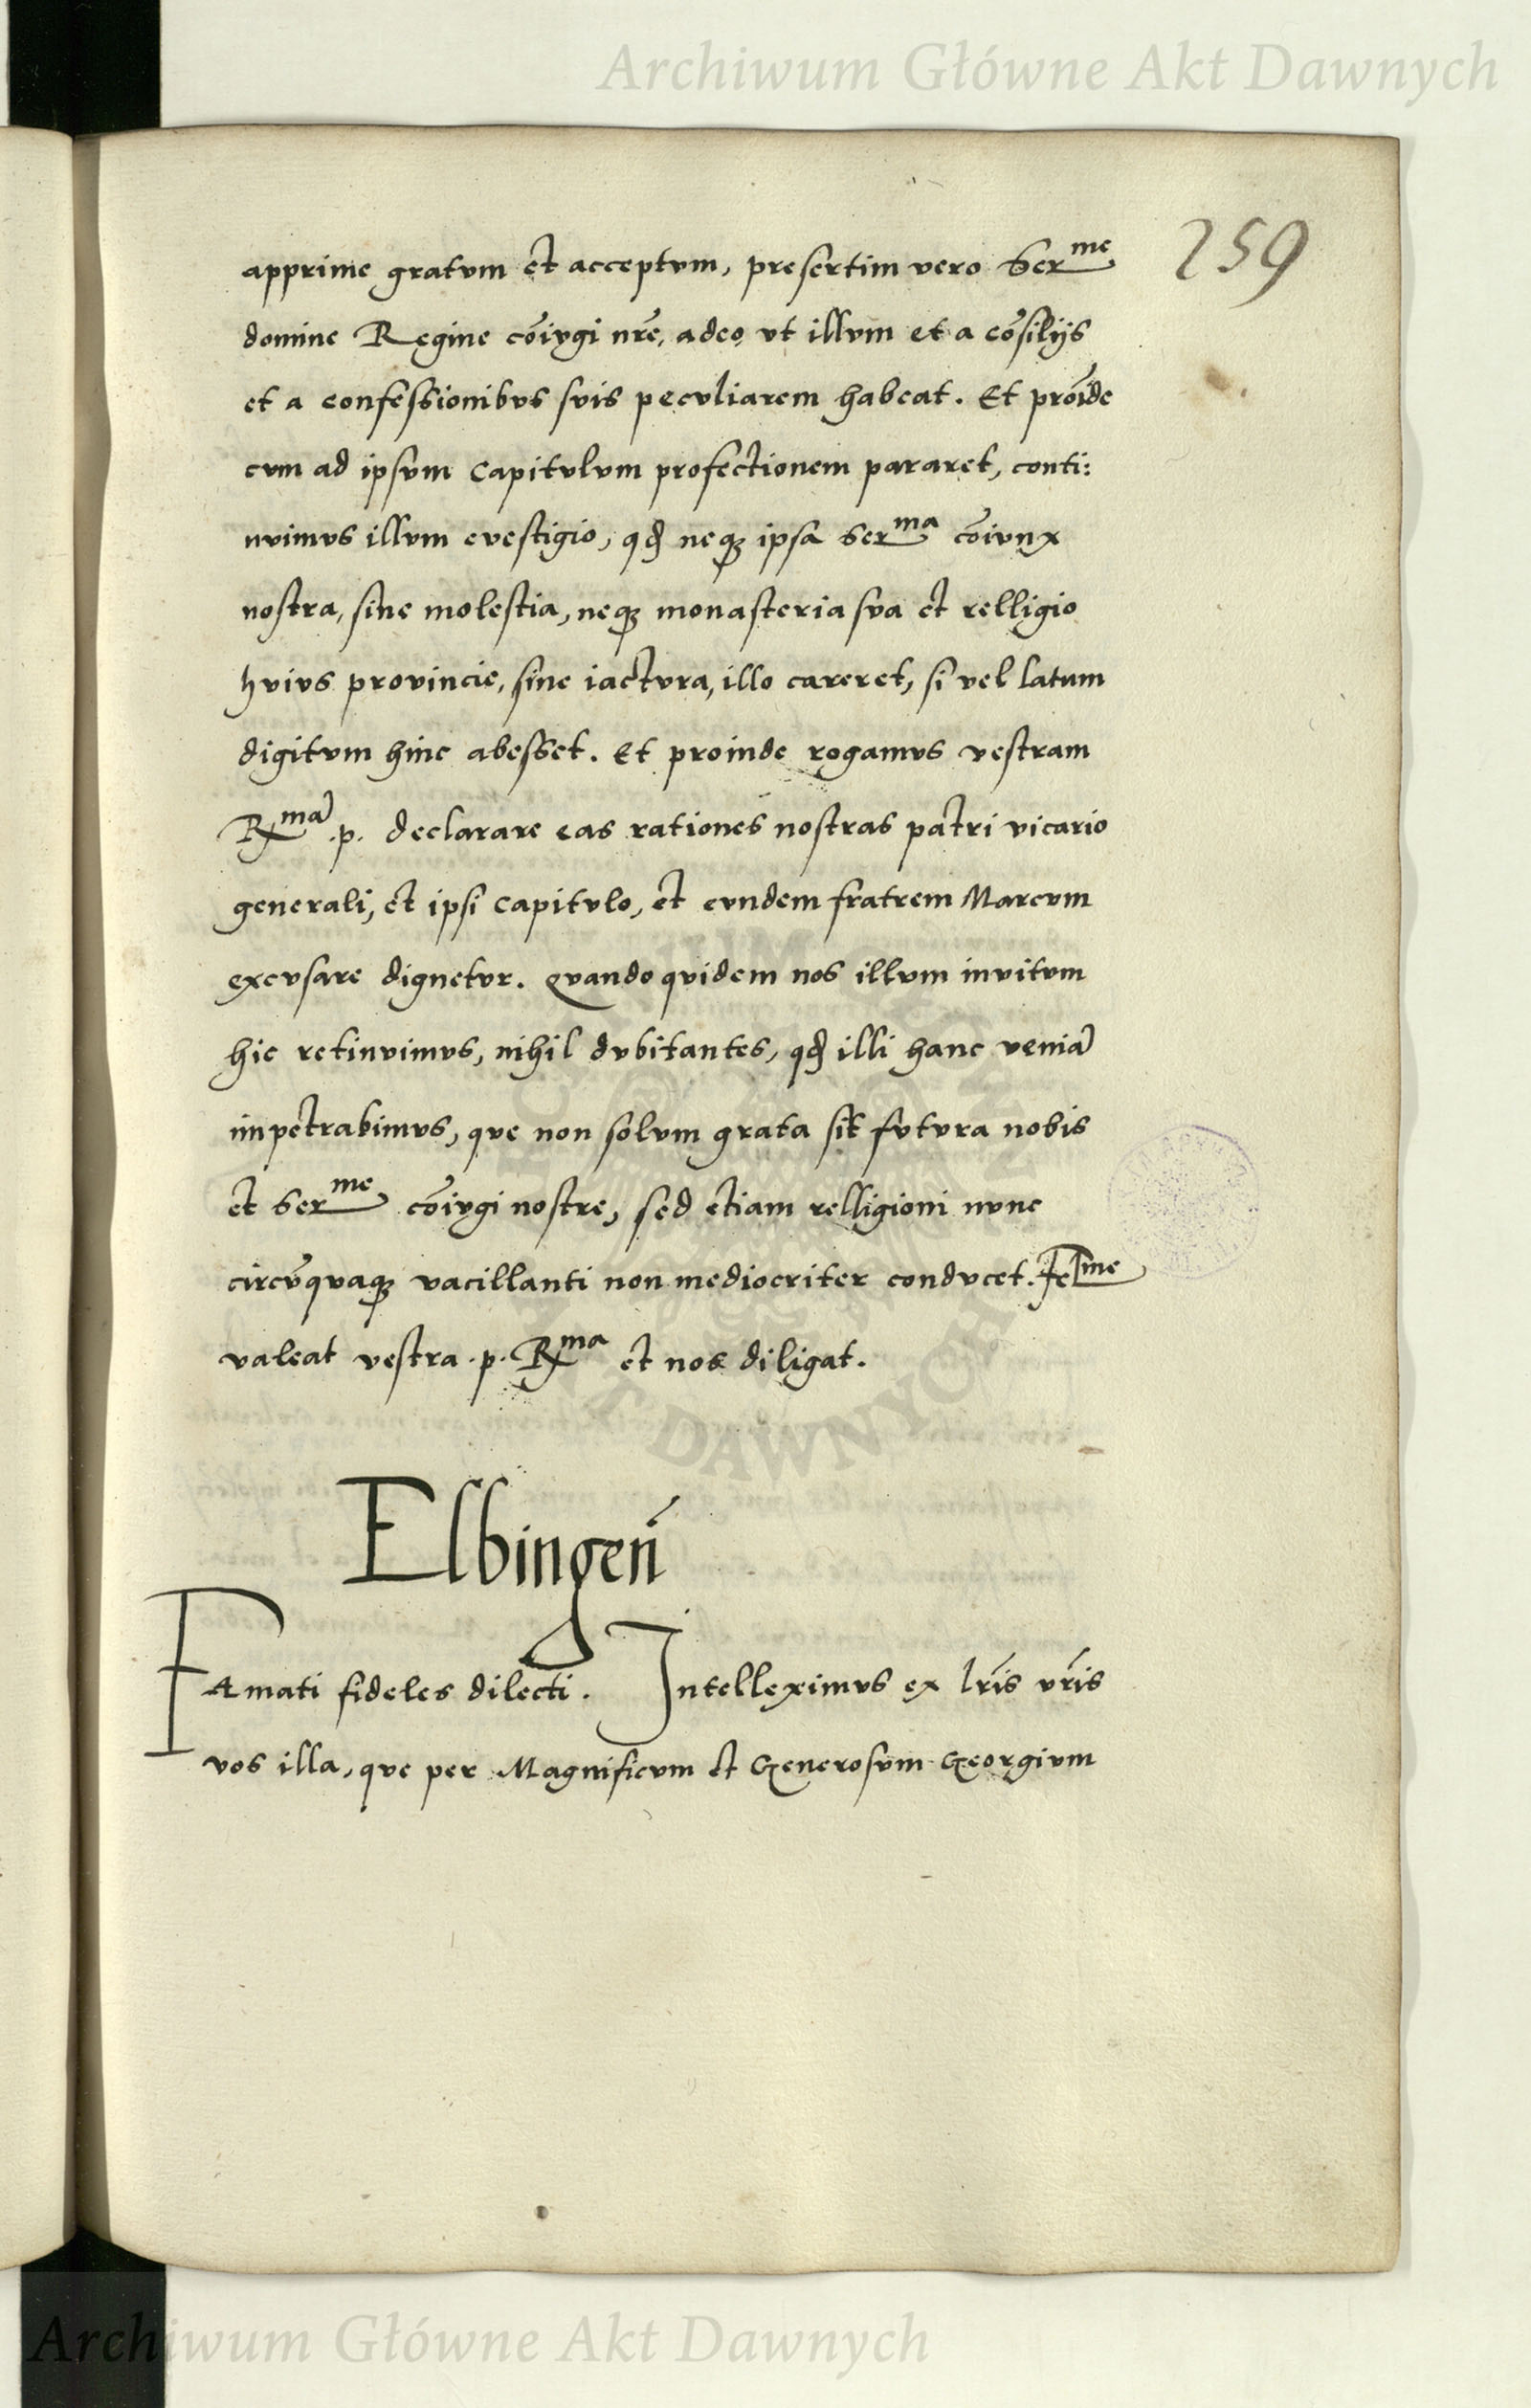 Archiwum Główne Akt Dawnych
259
apprime gratum et acceptum, presertim vero Ser^me
domine Regine cōiugi nr̃e, adeo, ut illum et a cōsilijs
et a confessionibus suis peculiarem habeat. Et proīde
cum ad ipsum Capitulum profectionem pararet, conti:
nuimus illum evestigio, qđ neqȝ ipsa Ser^ma cōiunx
nostra, sine molestia, neqȝ monasteria sua et relligio
huius provincie, sine iactura, illo careret, si vel latum
digitum hinc abesset. Et proinde rogamus vestram
R^mã .p. declarare eas rationes nostras patri vicario
generali, et ipsi Capitulo, et eundem fratrem Marcum
excusare dignetur. Quandoquidem nos illum invitum
hic retinuimus, nihil dubitantes, qđ illi hanc veniã
impetrabimus, que non solum grata sit futura nobis
et Ser^me cōiugi nostre, sed etiam relligioni nunc
circũquaqȝ vacillanti non mediocriter conducet. Fel^me
valeat vestra .p. R^ma et nos diligat.
Elbingeñ
Famati fideles dilecti. Intelleximus ex lr̃is vr̃is
vos illa, que per Magnificum et Generosum Georgium
Archiwum Główne Akt Dawnych